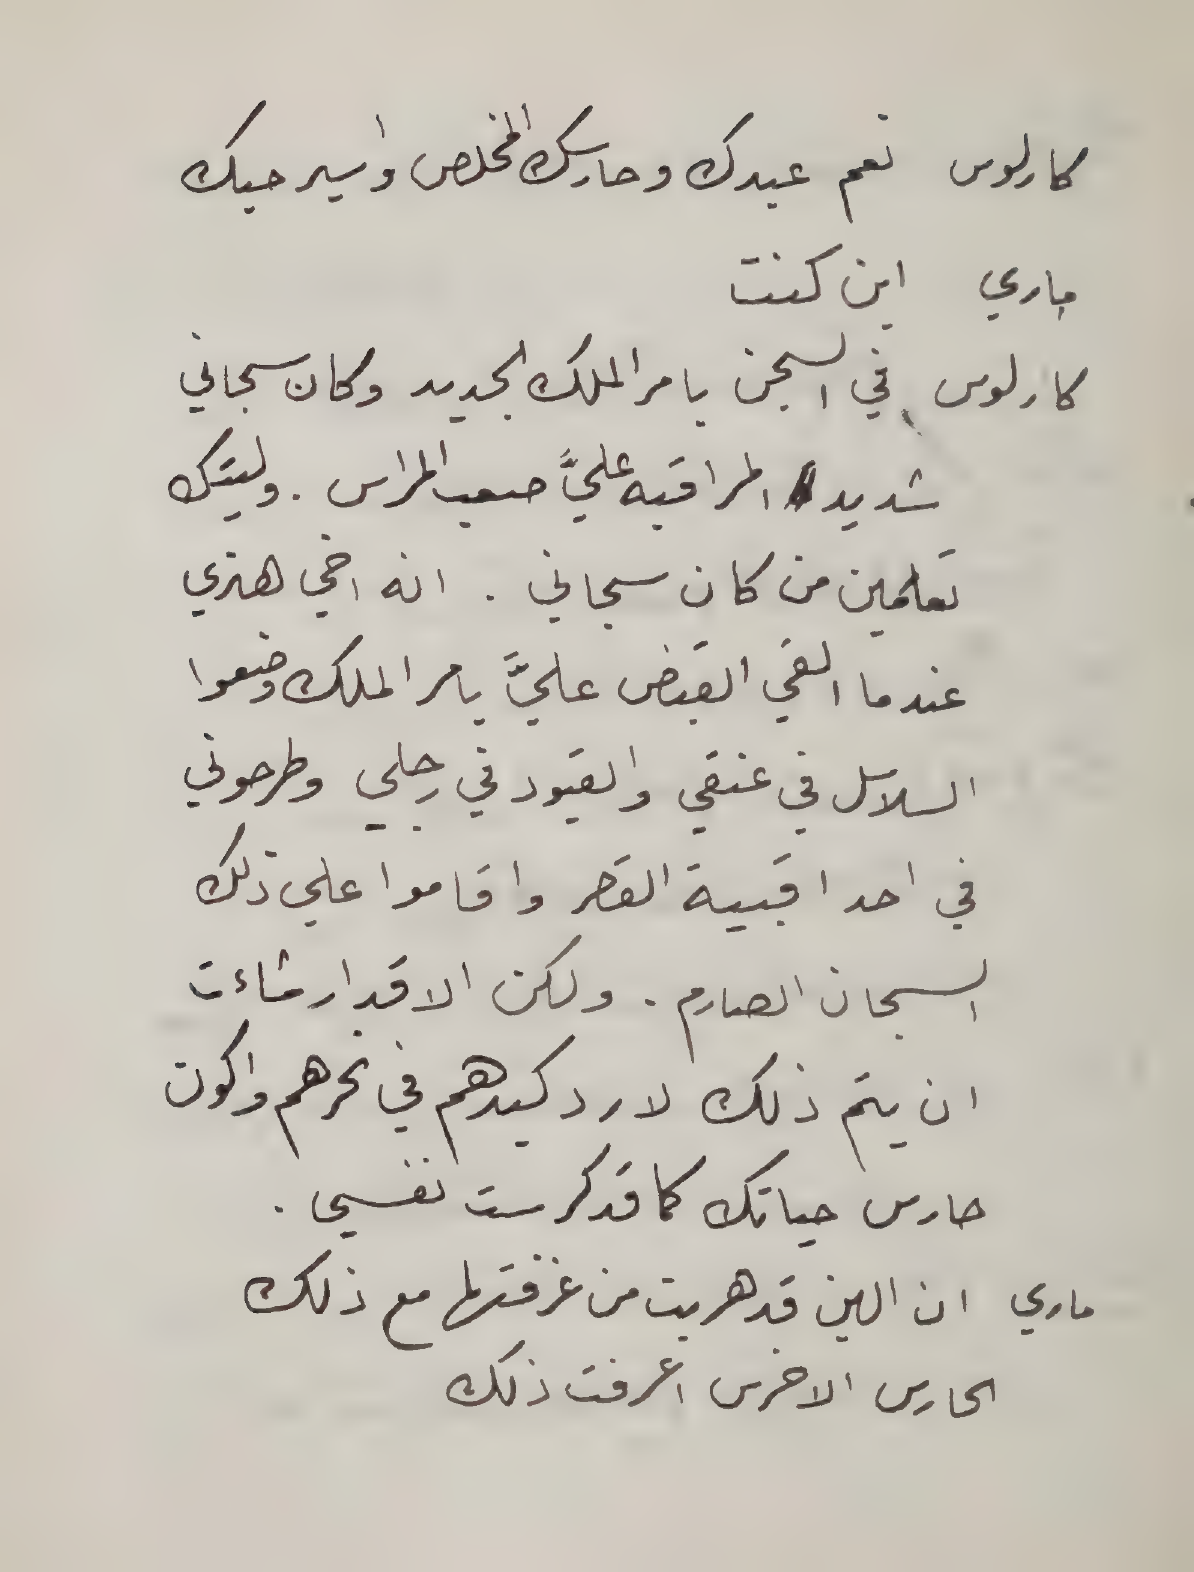 كارلوس نعم عبدك وحارسك المخلص واسير حبك
ماري اين كنت
كارلوس في السجن بامر الملك الجديد وكان سجاني
شديد المراقبه عليَّ صعب المراس . وليتك
تعلمين من كان سجاني . انه اخي هنري
عندما القي القبض عليَّ بامر الملك وضعوا
السلاسل في عنقي والقيود في رجلي وطرحوني
في احد اقبية القصر واقاموا علي ذلك
السجان الصارم . ولكن الاقدار شاءت
ان يتم ذلك لارد كيدهم في نحرهم واكون
حارس حياتك كما قد كرست نفسي .
ماري ان الين قد هربت من غرفتها مع ذلك
الحارس الاخرس اعرفت ذلك